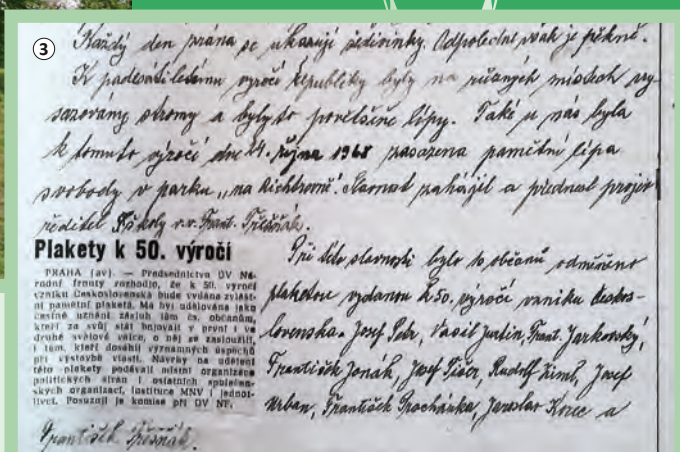 3
Každý den zrána se ukazují šedivinky. Odpoledne však je pěkně.
K padesátiletému výročí republiky byly na různých místech vy
sazovany stromy a byly to povětšině lípy. Také u nás byla
k tomuto výročí dne 24. října 1968 zasazena pamětní lípa
svobody v parku „na Richtrovně". Slavnost zahájil a přednesl projev
ředitel školy v.v. Frant. Třešňák.
Plakety k 50. výročí
PRAHA (av). — Předsednictvo ÚV Ná-
rodní fronty rozhodlo, že k 50. výročí
vzniku Československa bude vydána zvlášt-
ní pamětní plaketa. Má být udělována jako
čestné uznání zásluh těm čs. občanům,
kteří za svůj stát bojovali v první i ve
druhé světové válce, o něj se zasloužili,
i těm, kteří dosáhli významných úspěchů
při výstavbě vlasti. Návrhy na udělení
této plakety podávali místní organizace
politických stran i ostatních společen-
ských organizací, instituce MNV i jednot-
livci. Posuzují je komise při OV NF.
Při této slavnosti bylo 10 občanů odměněno
plaketou vydanou k 50. výročí vzniku Českos-
lovenska. Josef Petr, Vasil Jurtin, Frant. Jarkovský,
František Jonák, Josef Fišer, Rudolf Ziml, Josef
Urban, František Procházka, Jaroslav Kozec a
František Třešňák.